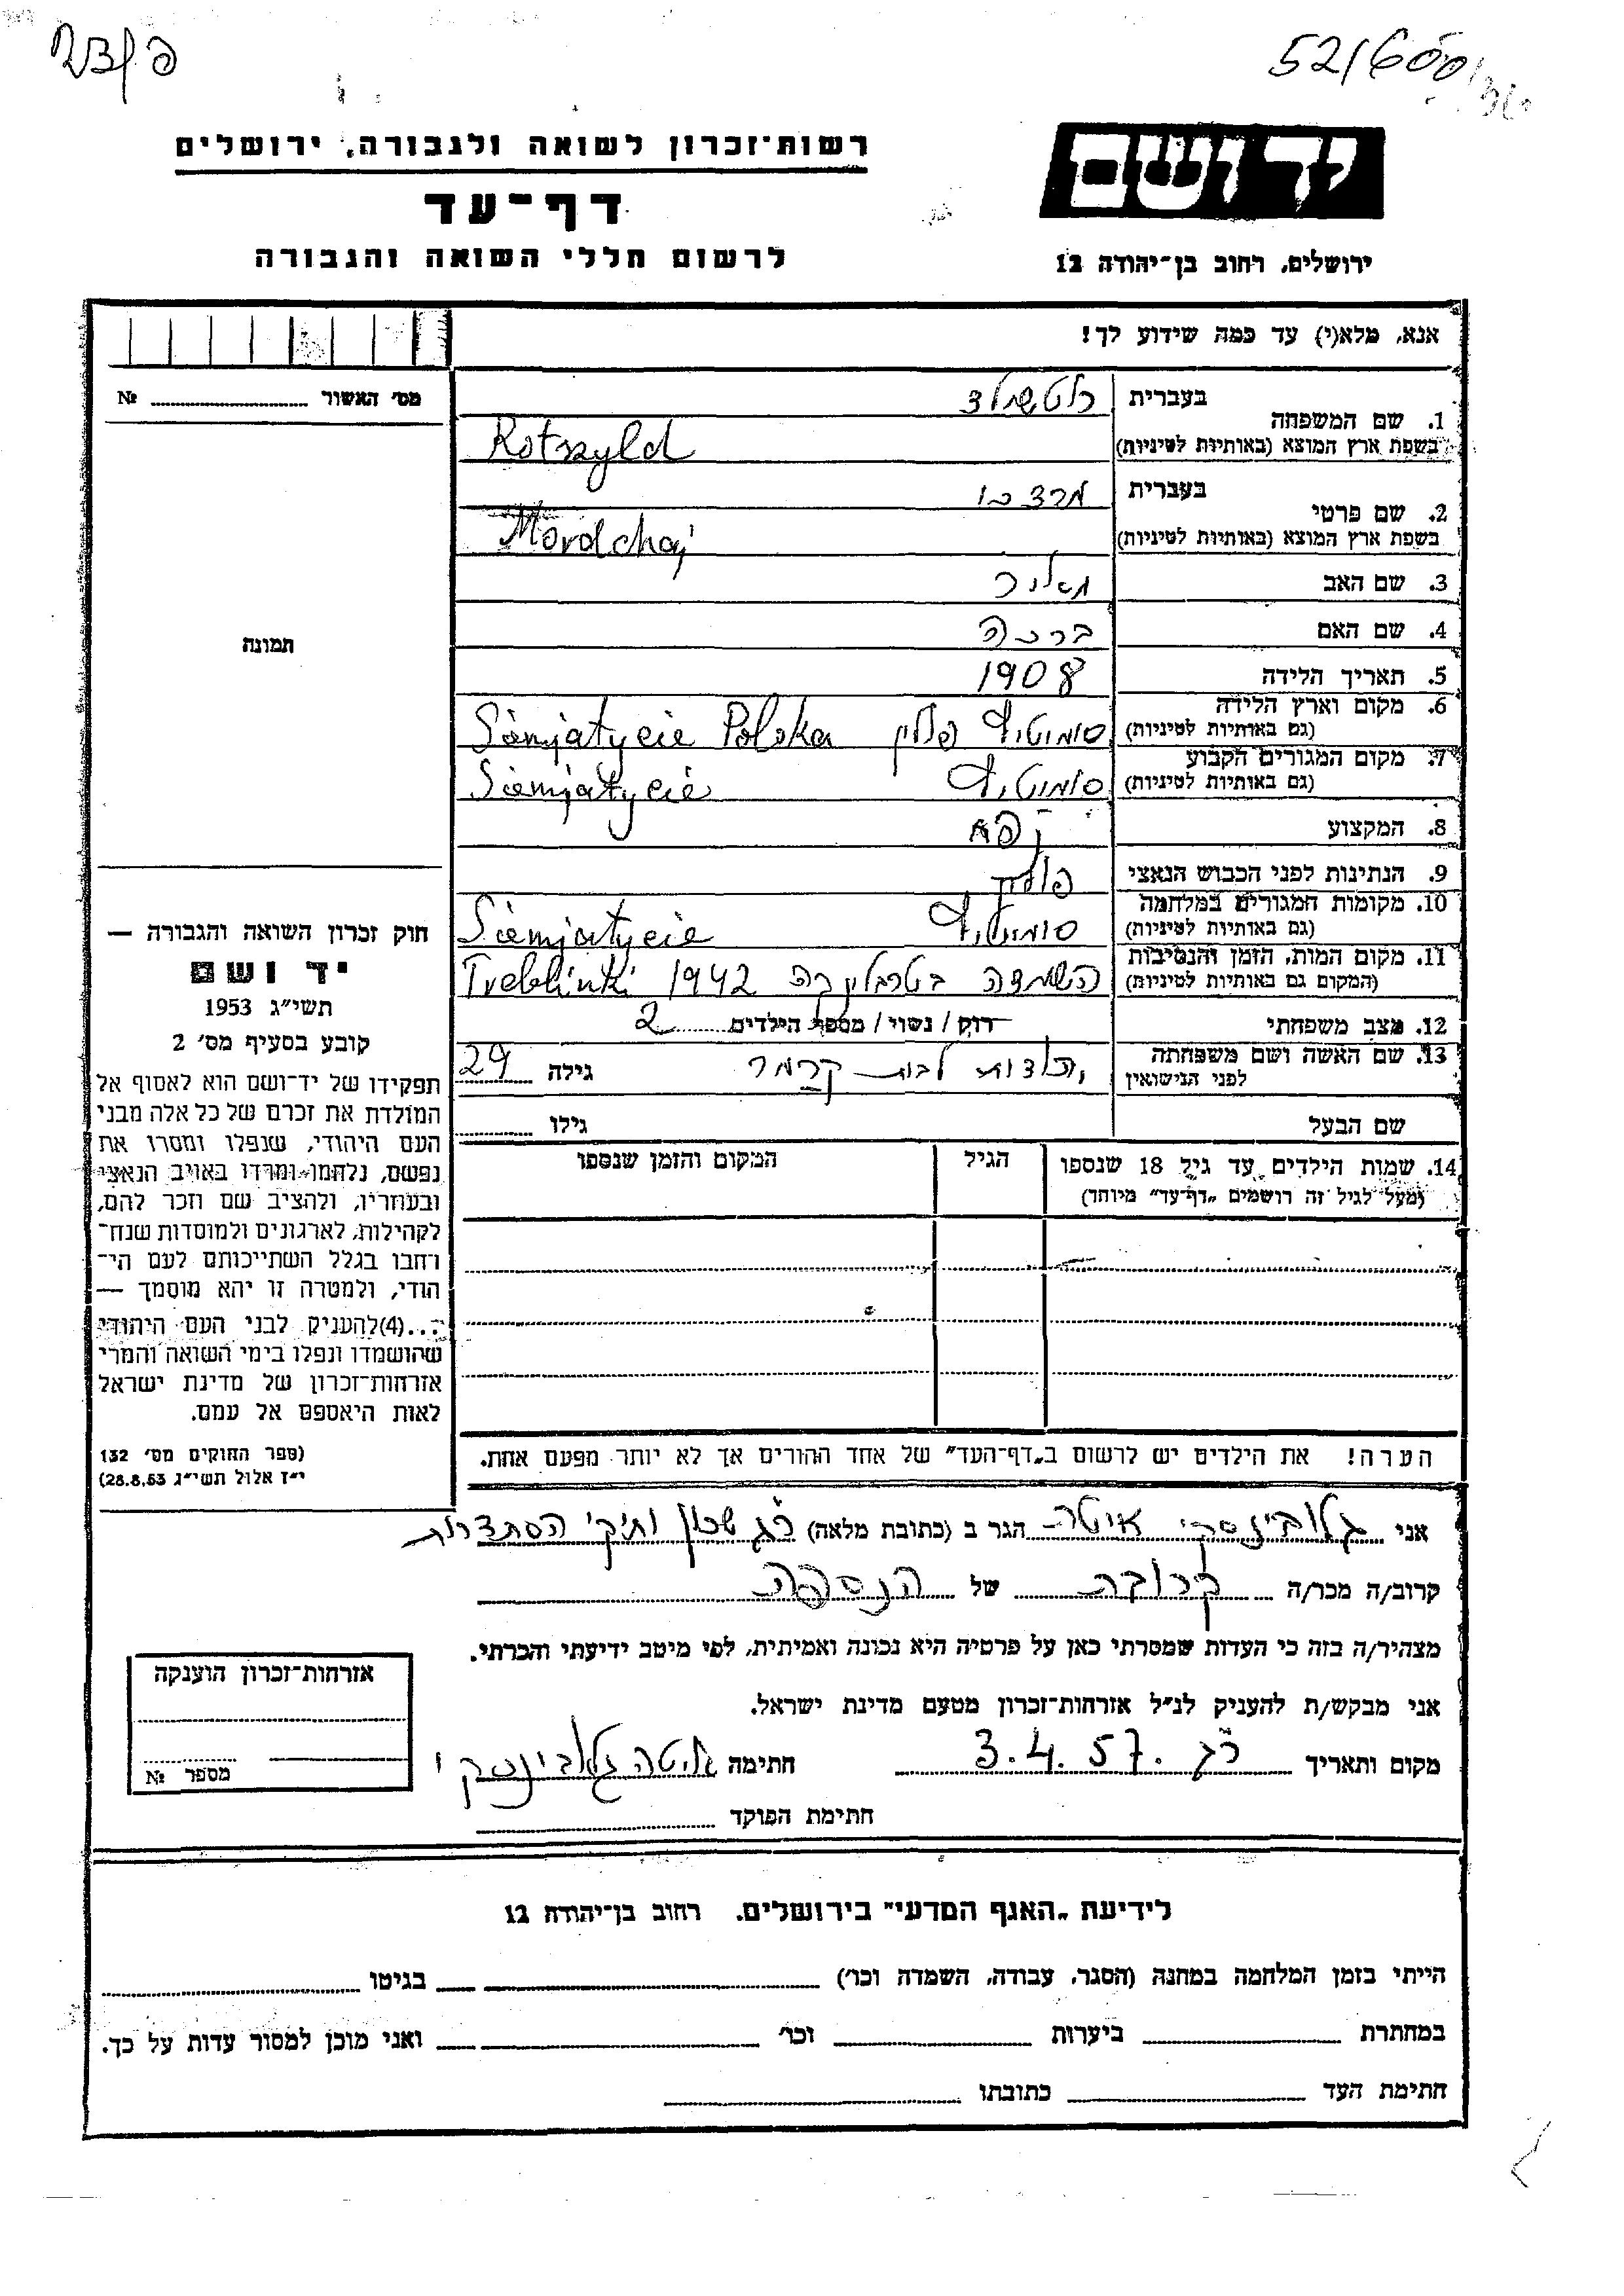 52/600
רשות־זכרון לשואה ולגבורה, ירושלים
ידושם
דף־עד
לרשום חללי השואה והגבורה
ירושלים, רחוב בן־יהודה 12
אנא, מלא(י) עד כמה שידוע לך!
מס׳ האשור № 
1. שם המשפחה
בעברית רוטשילד
בשפת ארץ המוצא (באותיות לטיניות) Rotszyld
2. שם פרטי
בעברית מרדכי
בשפת ארץ המוצא (באותיות לטיניות) Mordchaj
3. שם האב מאיר
4. שם האם ברכה
5. תאריך הלידה 1908
6. מקום וארץ הלידה
(גם באותיות לטיניות) פולין Siemjatycie Polska
7. מקום המגורים הקבוע
(גם באותיות לטיניות) Siemjatycie
8. המקצוע
9. הנתינות לפני הכבוש הנאצי
10. מקומות המגורים במלחמה
(גם באותיות לטיניות) Siemjatycie
11. מקום המות, הזמן והנסיבות
(המקום גם באותיות לטיניות) השמדה בטרבלינקה 1942 Treblinki
12. מצב משפחתי רוק / נשוי / מספר הילדים 2
13. שם האשה ושם משפחתה
לפני הנישואין לבית קרמר גילה 29
שם הבעל גילו
14. שמות הילדים עד גיל 18 שנספו
(מעל לגיל זה רושמים „דף־עד” מיוחד)
הגיל
המקום והזמן שנספו
תמונה
חוק זכרון השואה והגבורה —
יד ושם
תשי״ג 1953
קובע בסעיף מס׳ 2
תפקידו של יד־ושם הוא לאסוף אל
המולדת את זכרם של כל אלה מבני
העם היהודי, שנפלו ומסרו את
נפשם, נלחמו ומרדו באויב הנאצי
ובעוזריו, ולהציב שם וזכר להם,
לקהילות, לארגונים ולמוסדות שנח־
רחבו בגלל השתייכותם לעם הי־
הודי, ולמטרה זו יהא מוסמך —
...(4) להעניק לבני העם היהודי
שהושמדו ונפלו בימי השואה והמרי
אזרחות־זכרון של מדינת ישראל
לאות היאספם אל עמם.
(ספר החוקים מס׳ 132
י״ז אלול תשי״ג 28.8.53)
הערה! את הילדים יש לרשום ב„דף־העד” של אחד ההורים אך לא יותר מפעם אחת.
אני גלובינסקי איטה הגר ב (כתובת מלאה) רג שכון ותיקי הסתדרות
קרוב/ה מכר/ה קרובה של הנספה
מצהיר/ה בזה כי העדות שמסרתי כאן על פרטיה היא נכונה ואמיתית, לפי מיטב ידיעתי והכרתי.
אני מבקש/ת להעניק לנ״ל אזרחות־זכרון מטעם מדינת ישראל.
מקום ותאריך רג 3.4.57 חתימה איטה גלובינסקי
חתימת הפוקד
אזרחות־זכרון הוענקה
מספר №
לידיעת „האגף המדעי” בירושלים. רחוב בן־יהודה 12
הייתי בזמן המלחמה במחנה (הסגר, עבודה, השמדה וכו׳) בגיטו
במחתרת ביערות וכו׳ ואני מוכן למסור עדות על כך.
חתימת העד כתובתו